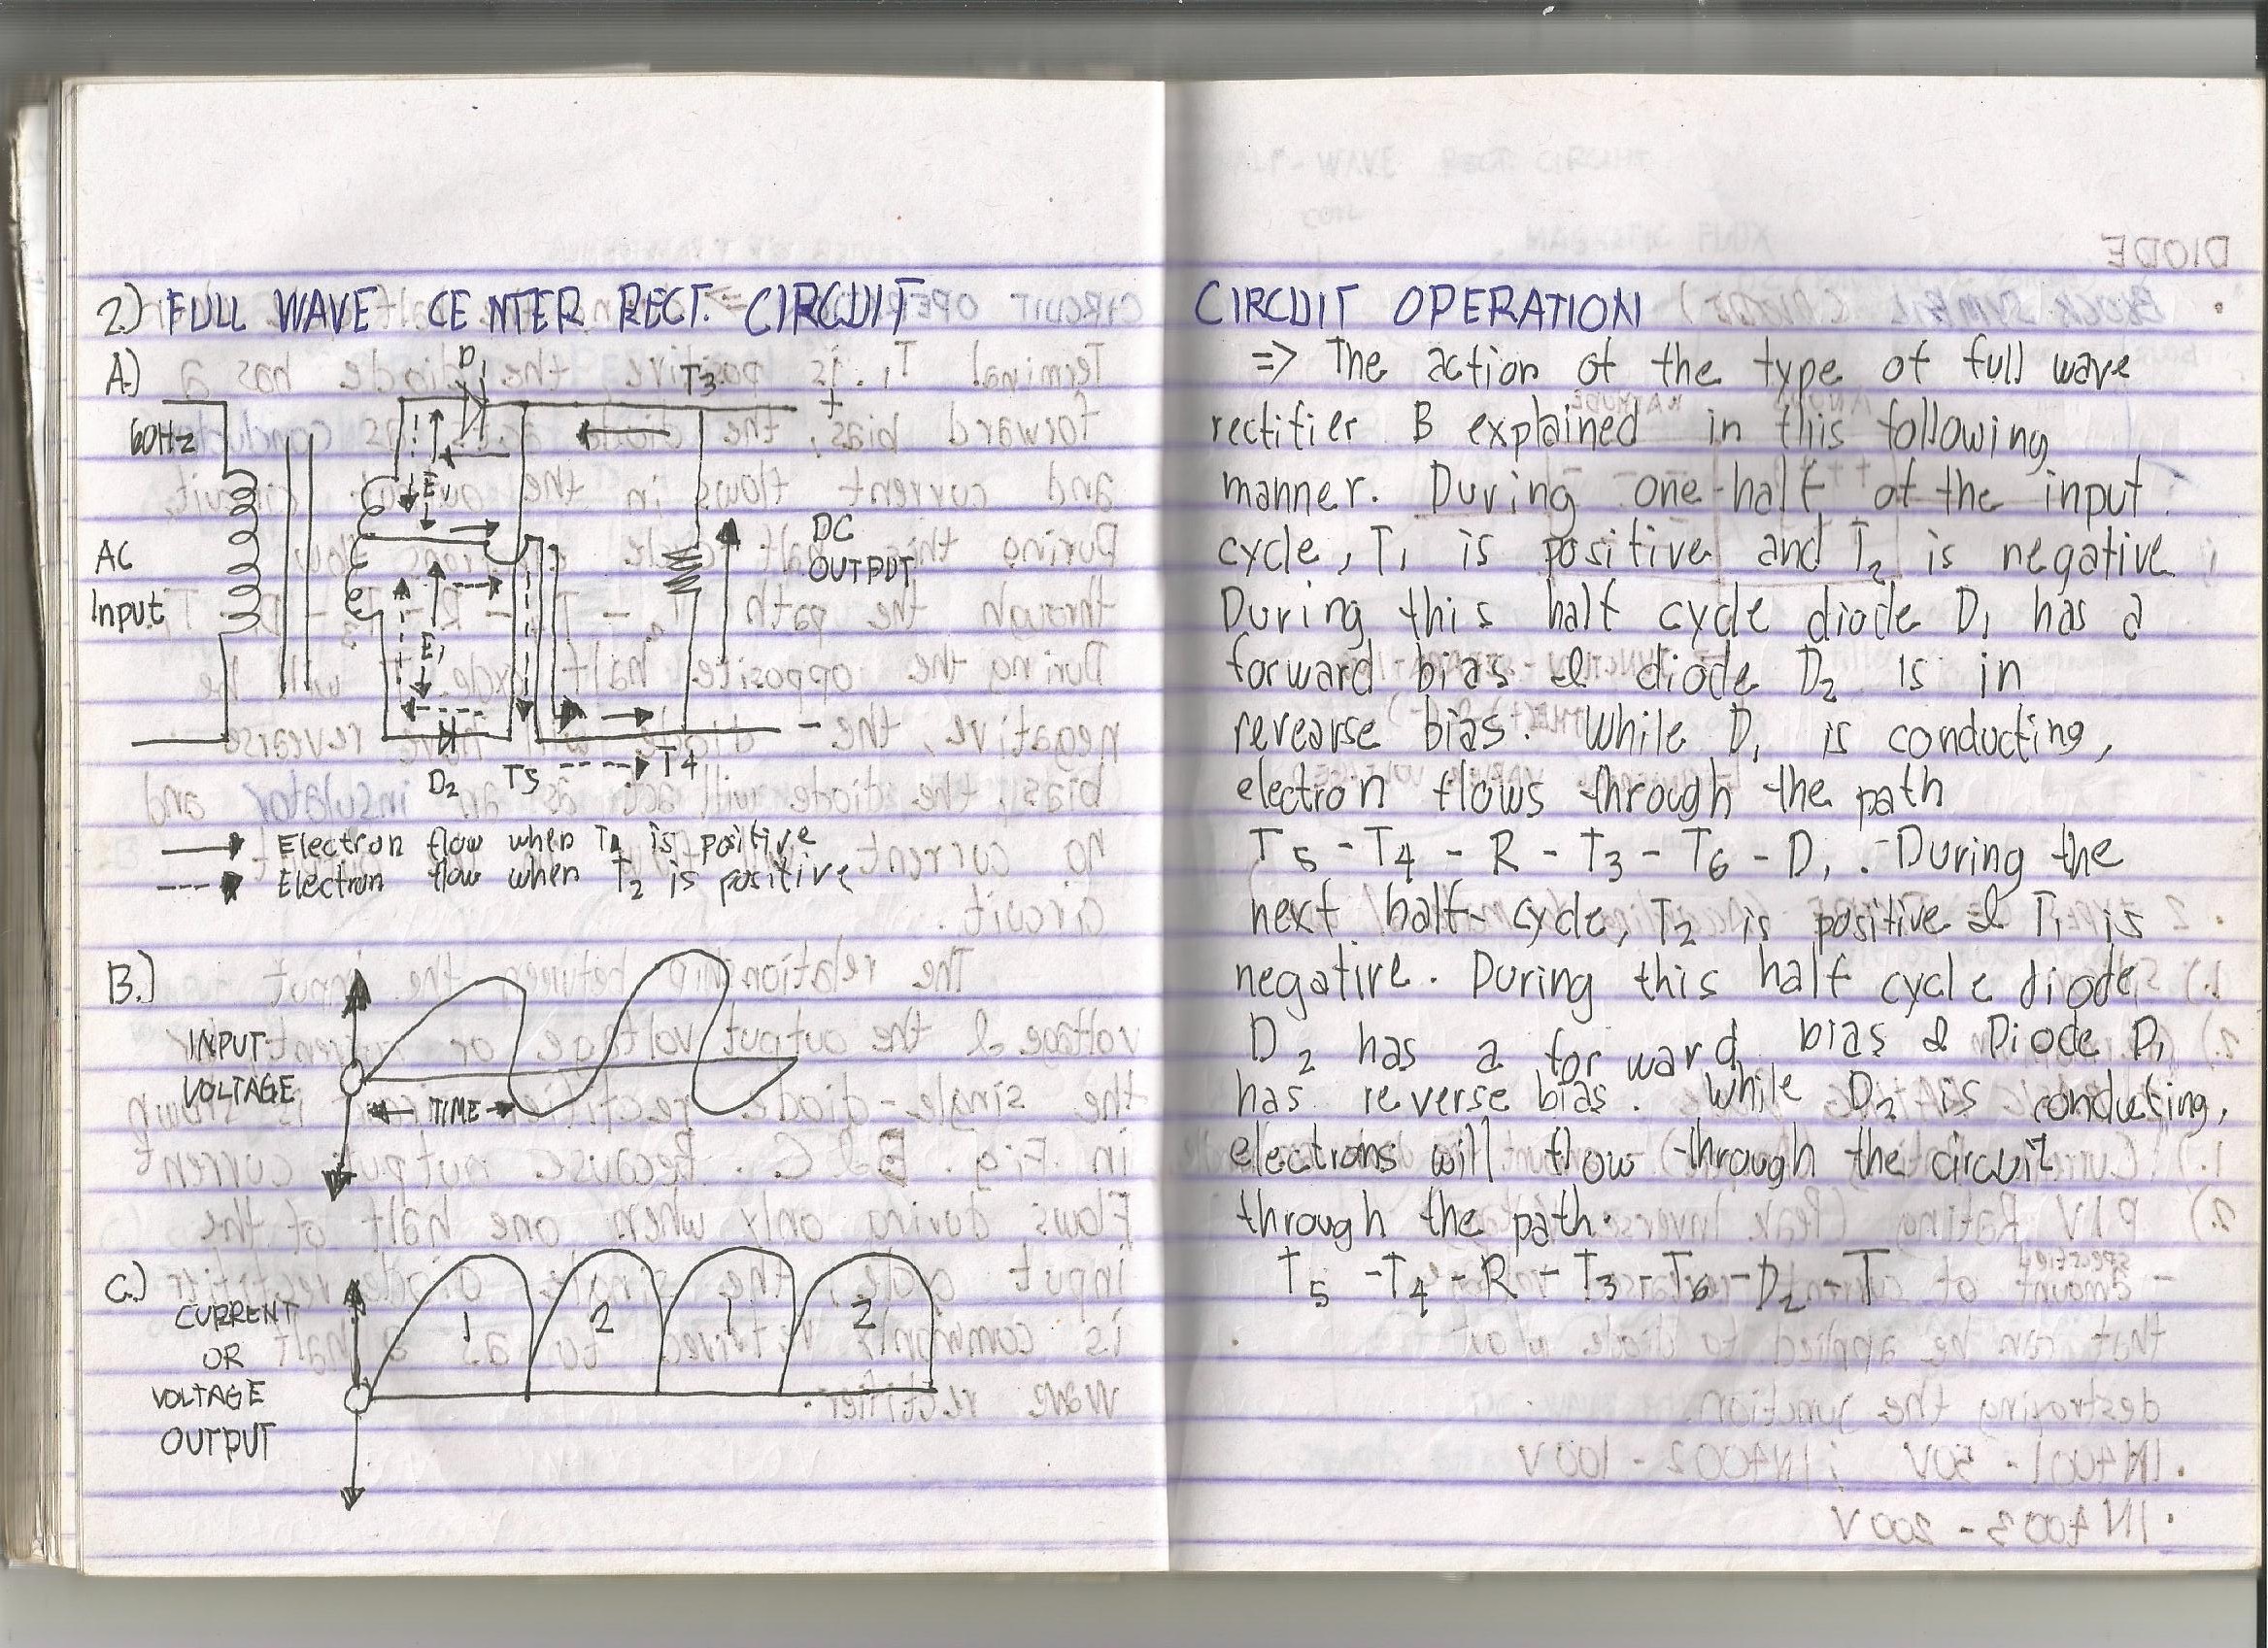 2.) FULL WAVE CENTER RECT. CIRCUIT
A.)
D1
T3
+
60Hz
E1
AC
Input
DC
OUTPUT
E1
D2
T5
T4
Electron flow when T1 is positive
Electron flow when T2 is positive
B.)
INPUT
VOLTAGE
TIME
C.)
CURRENT
OR
VOLTAGE
OUTPUT
1
2
1
2
CIRCUIT OPERATION
=> The action of the type of full wave
rectifier B explained in this following
manner. During one-half of the input
cycle, T1 is positive and T2 is negative
During this half cycle diode D1 has a
forward bias & diode D2 is in
revearse bias. While D1 is conducting,
electron flows through the path
T5 - T4 - R - T3 - T6 - D1. During the
next half-cycle, T2 is positive & T1 is
negative. During this half cycle diode
D2 has a forward bias & Diode D1
has reverse bias. While D2 is conducting,
electrons will flow through the circuit
through the path.
T5 - T4 - R - T3 - T6 - D2 - T